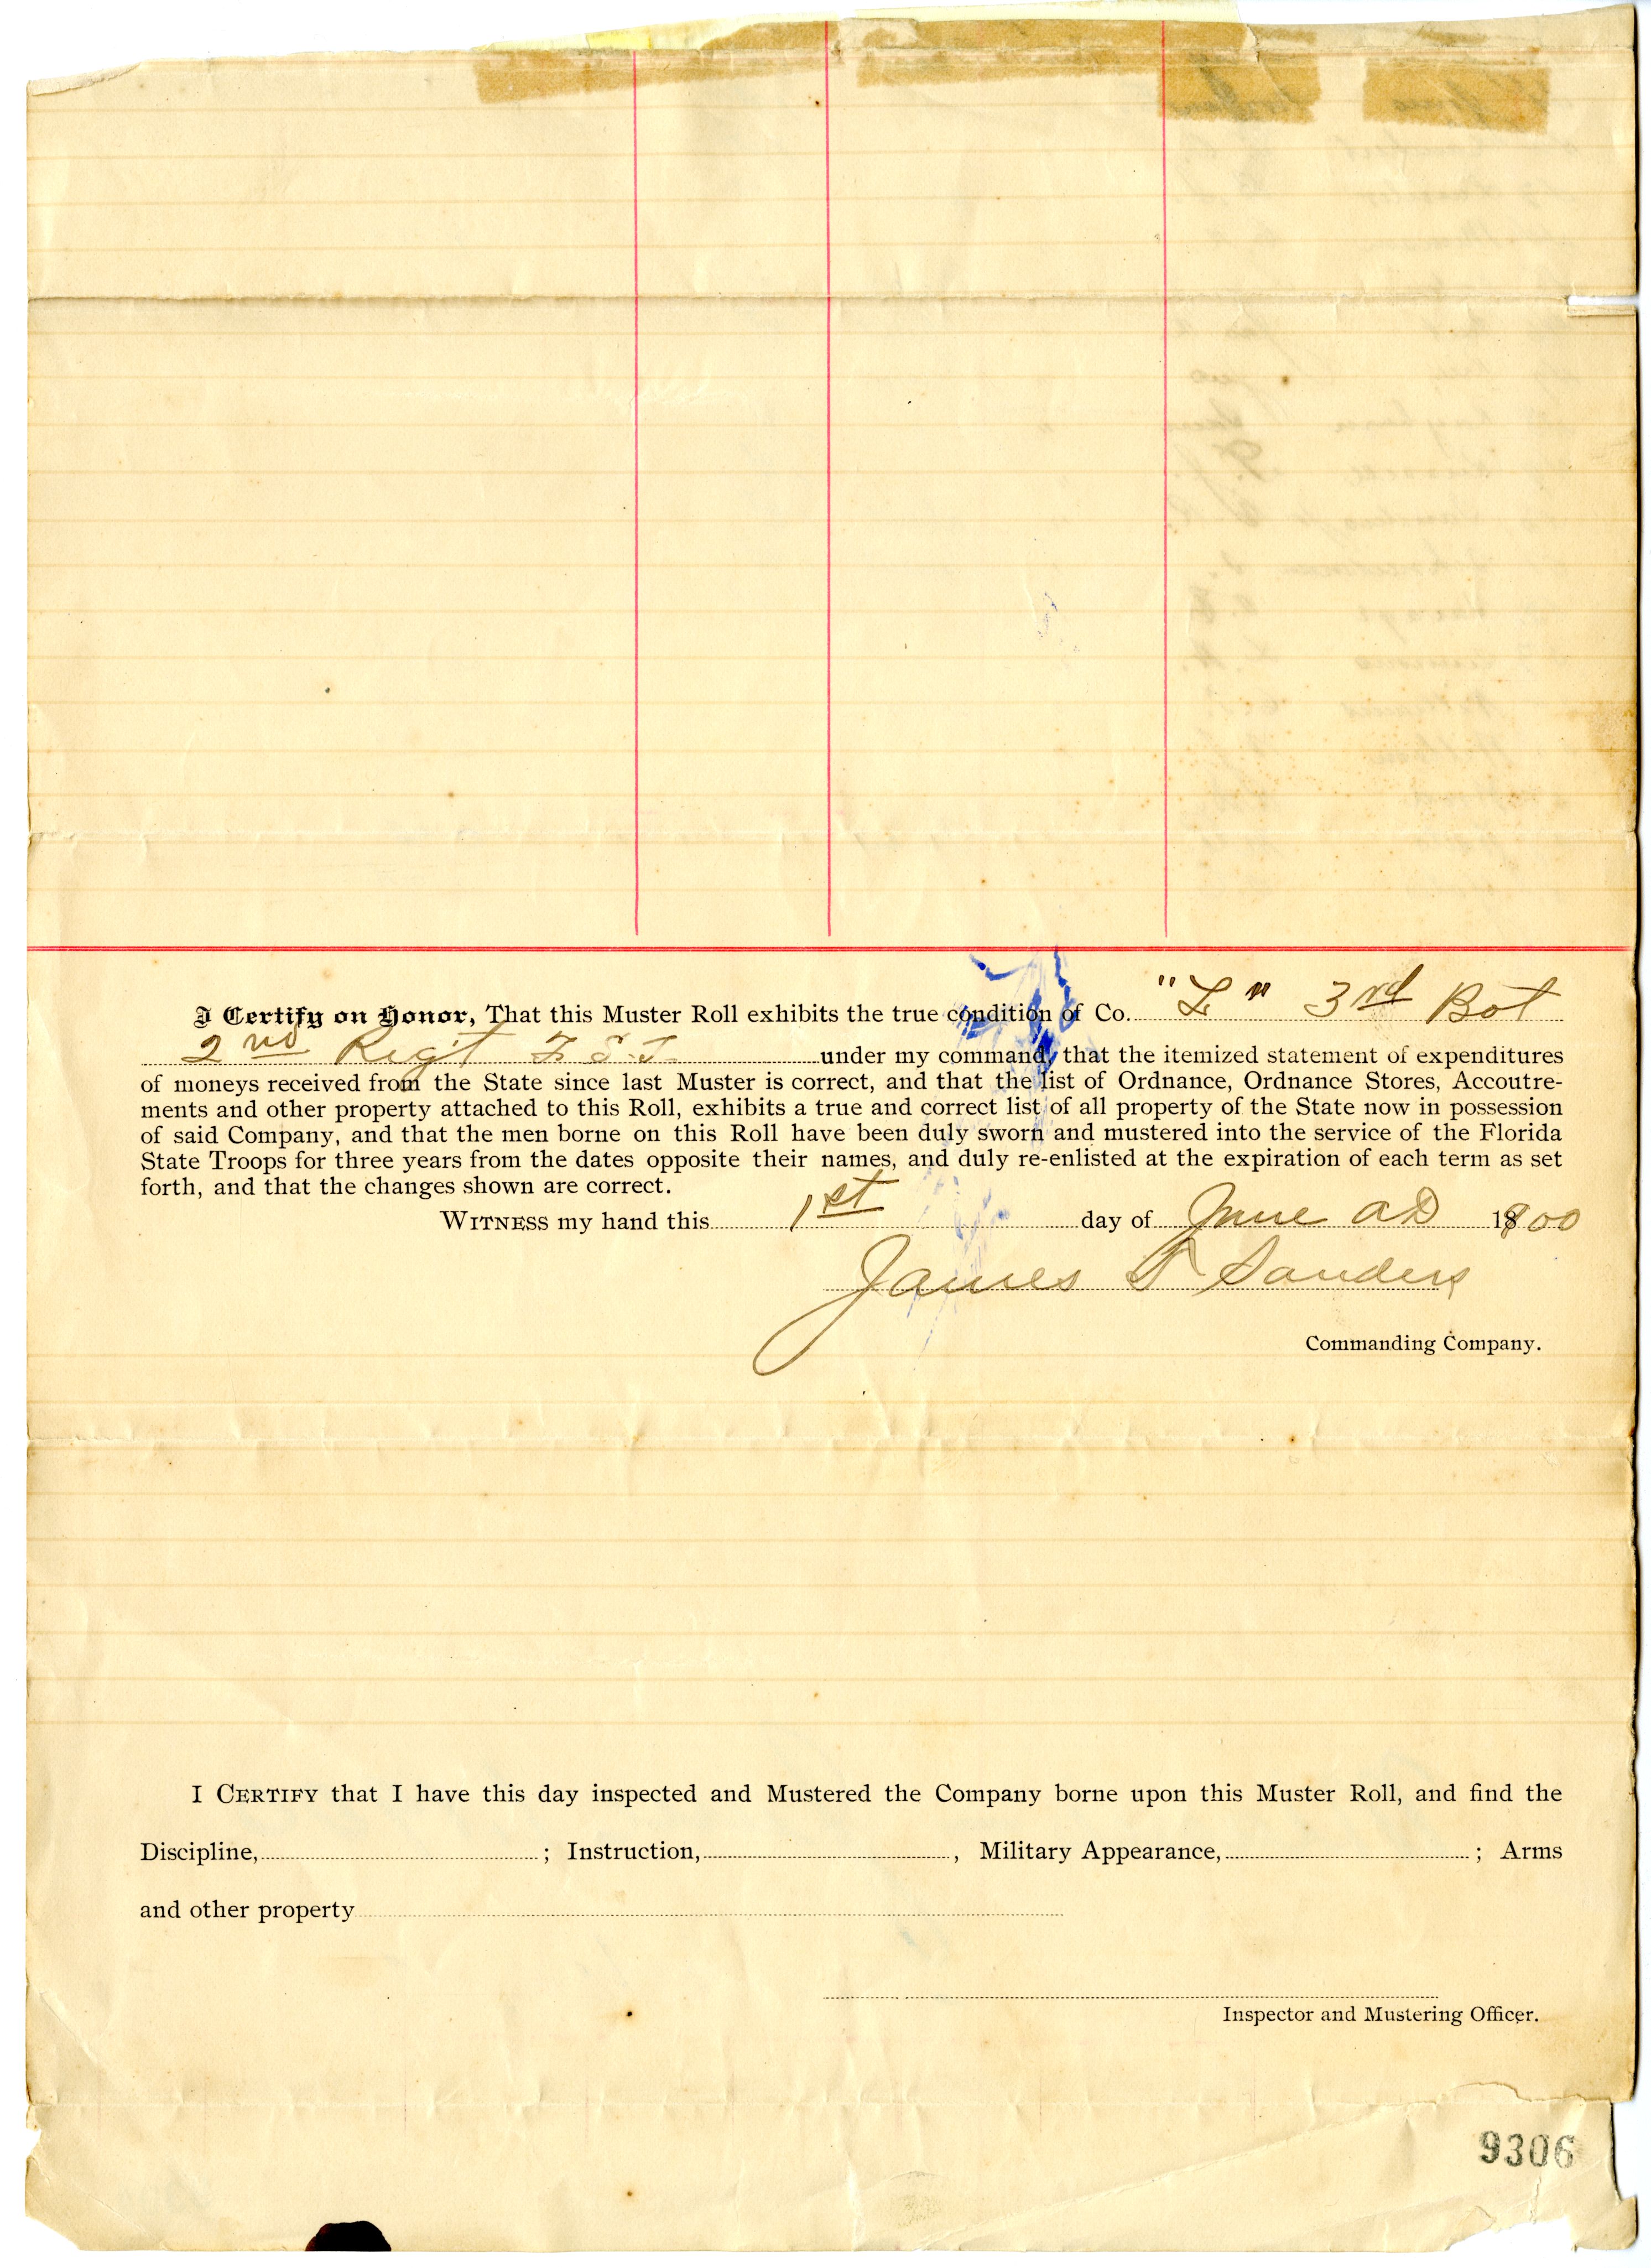 I Certify on Honor, That this Muster Roll exhibits the true condition of Co. "L" 3rd Bat
2nd Reg't F S T under my command, that the itemized statement of expenditures
of moneys received from the State since last Muster is correct, and that the list of Ordnance, Ordnance Stores, Accoutre-
ments and other property attached to this Roll, exhibits a true and correct list of all property of the State now in possession
of said Company, and that the men borne on this Roll have been duly sworn and mustered into the service of the Florida
State Troops for three years from the dates opposite their names, and duly re-enlisted at the expiration of each term as set
forth, and that the changes shown are correct.
WITNESS my hand this 1st day of June AD 1900
James T Sanders
Commanding Company.
I CERTIFY that I have this day inspected and Mustered the Company borne upon this Muster Roll, and find the
Discipline, ; Instruction, , Military Appearance, ; Arms
and other property
Inspector and Mustering Officer.
9306